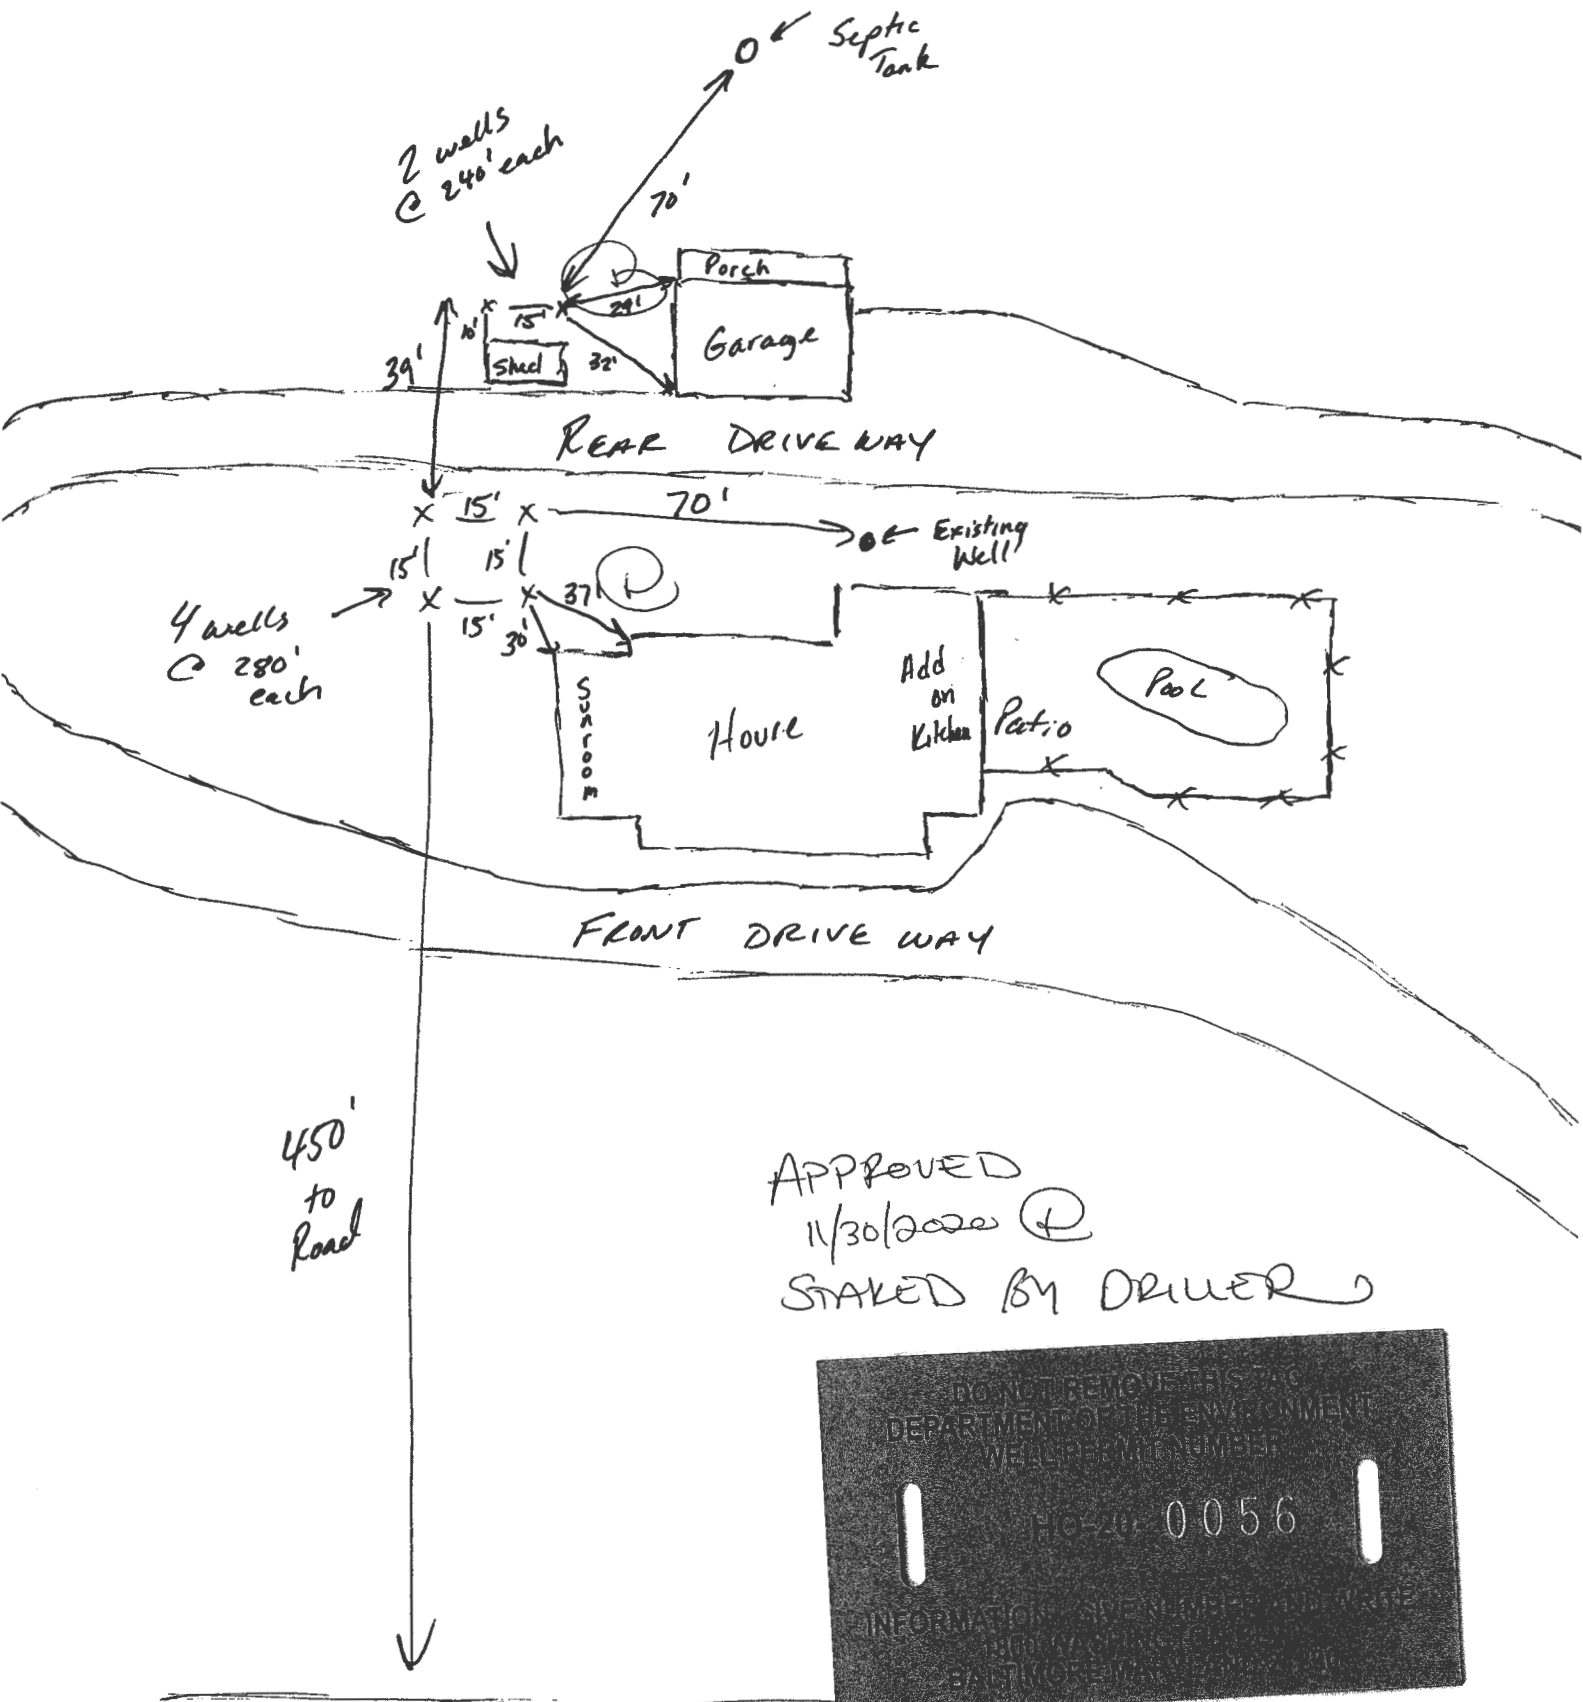 Septic
Tank
2 wells
@ 240' each
70'
Porch
29'
15'
10'
Garage
Shed
32'
39'
REAR DRIVEWAY
15'
70'
Existing
Well
15'
15'
37'
4 wells
@ 280'
each
15'
30'
Sunroom
House
Add
on
Kitchen
Patio
Pool
FRONT DRIVEWAY
450'
to
Road
APPROVED
11/30/2020
STAKED BY DRILLER
DO NOT REMOVE THIS TAG
DEPARTMENT OF THE ENVIRONMENT
WELL PERMIT NUMBER
HO-20- 0056
INFORMATION GIVE NUMBER AND WRITE
BALTIMORE